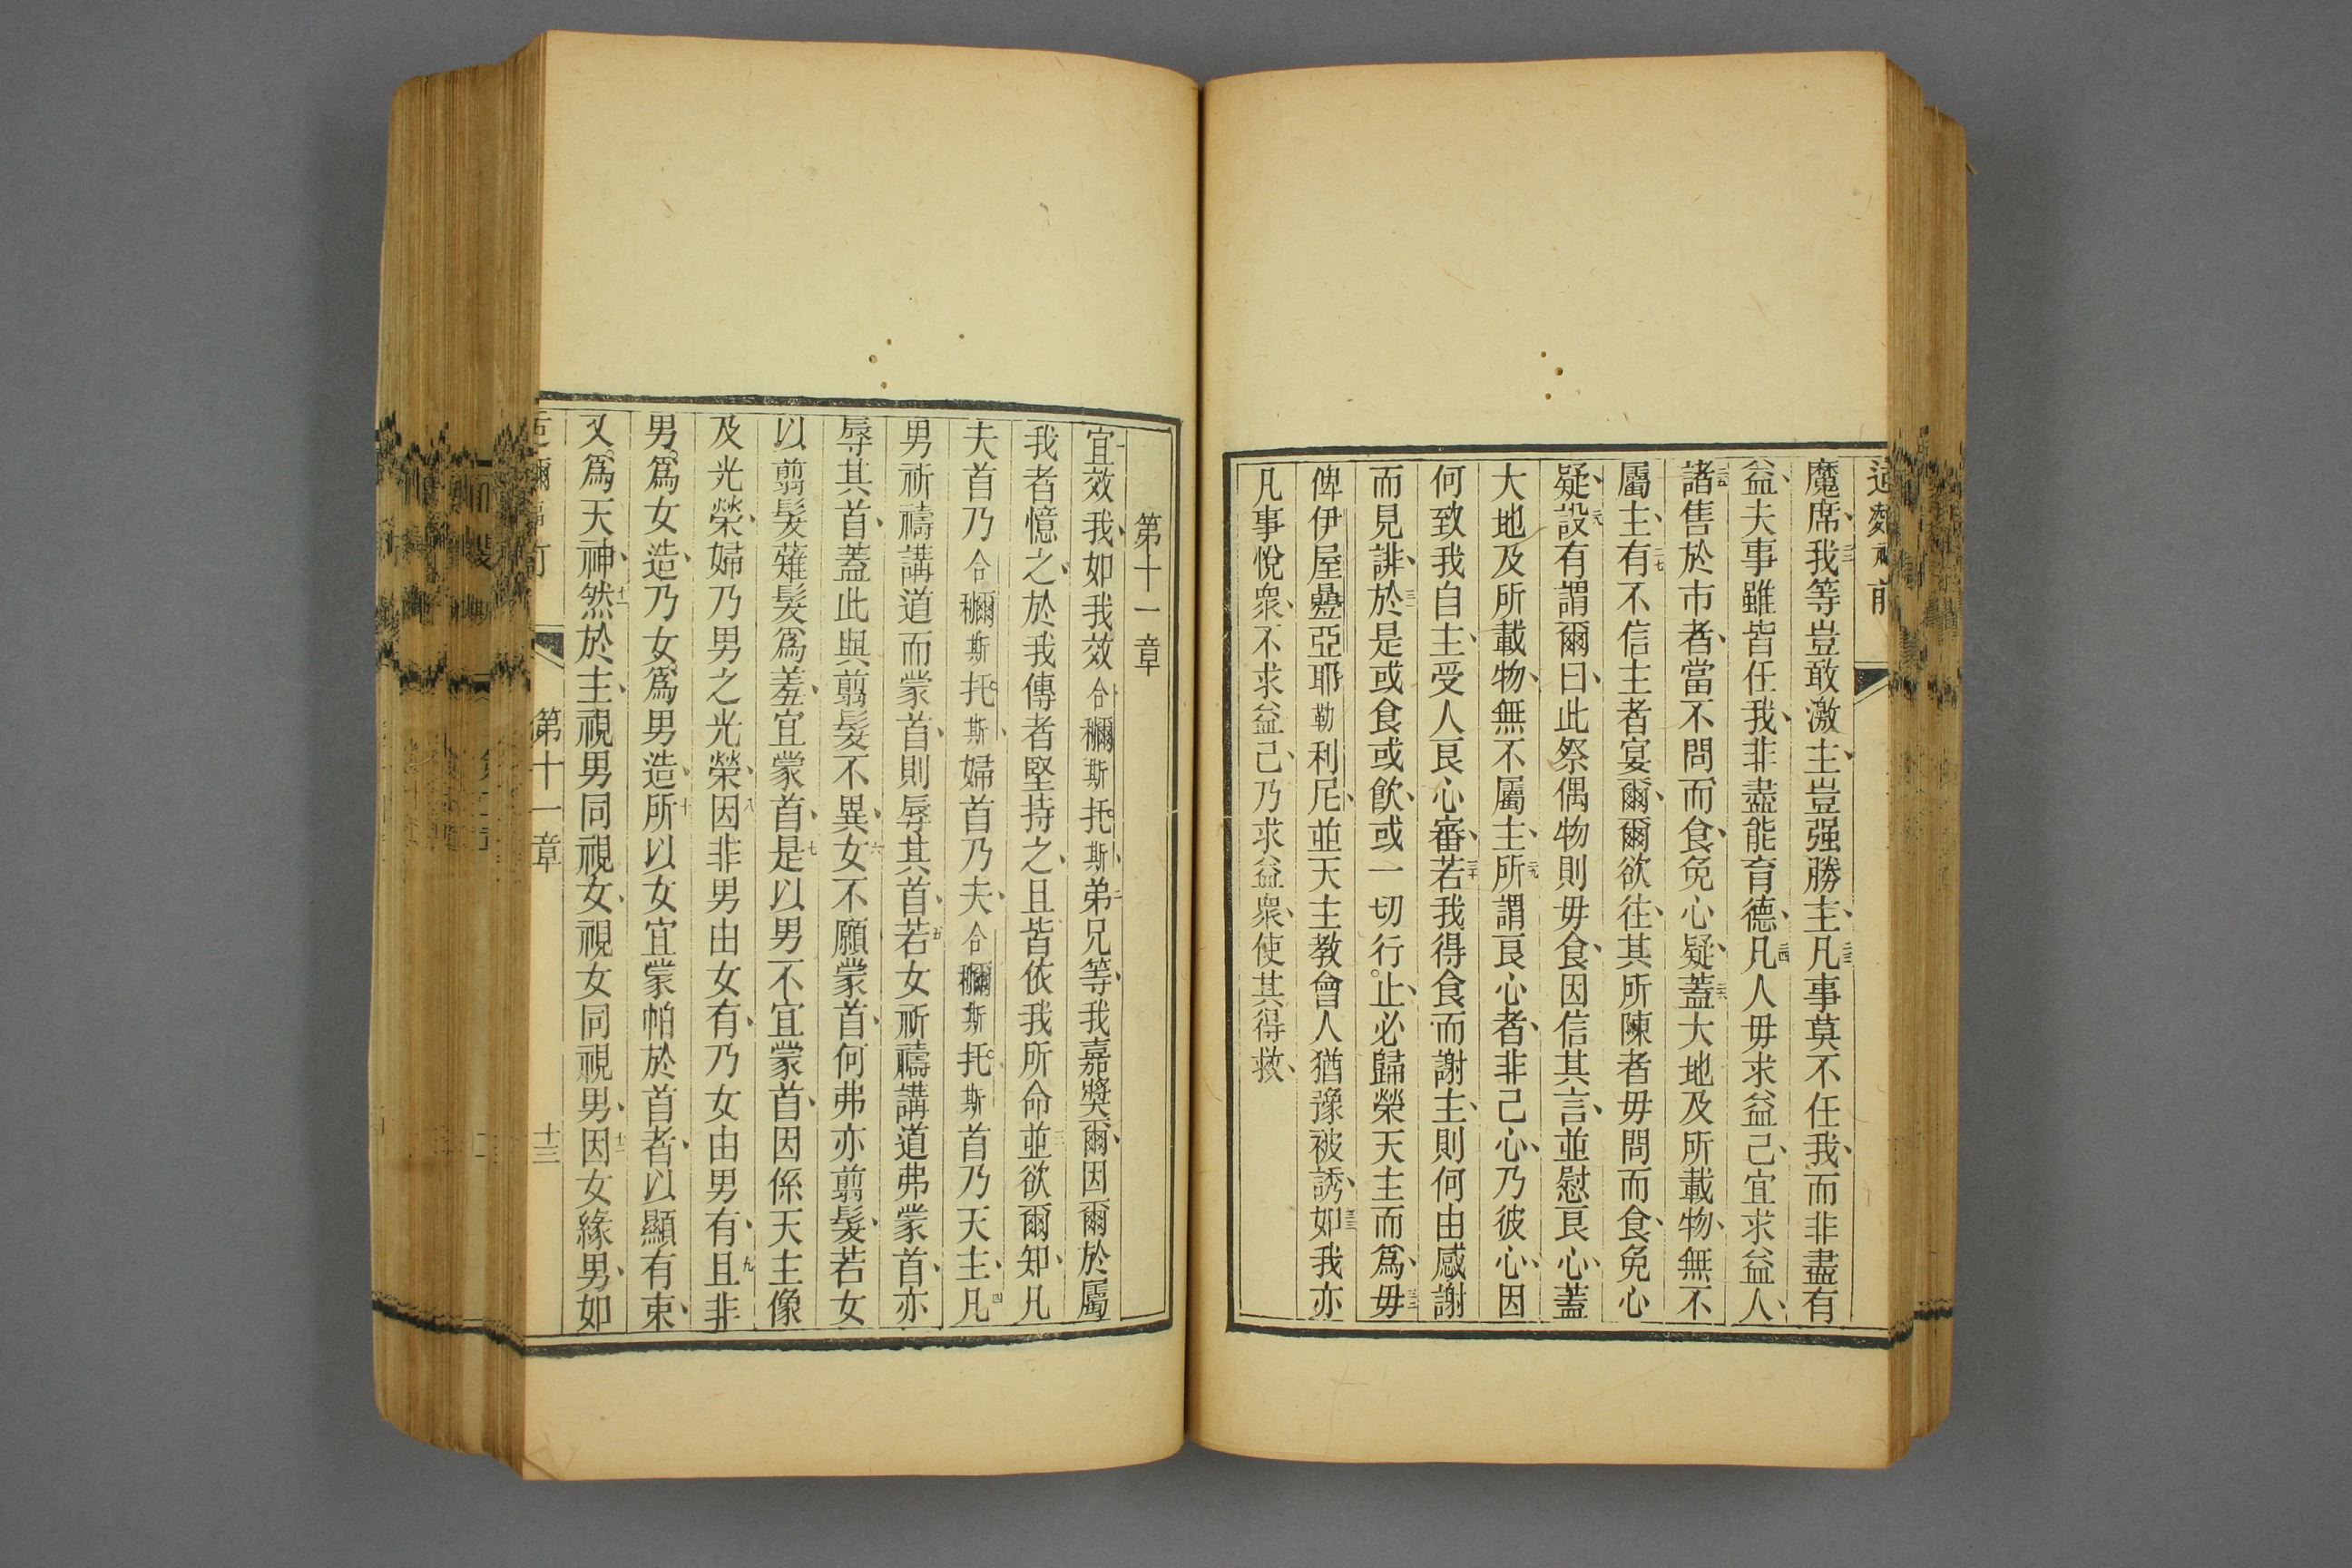 魔席、我等豈敢激主、豈强勝主、凡事莫不任我、而非盡有
益、夫事雖皆任我、非盡能育德、凡人毋求益己、宜求益人、
諸售於市者、當不問而食、免心疑、蓋大地及所載物、無不
屬主、有不信主者宴爾、爾欲往、其所陳者毋問而食、免心
疑、設有謂爾曰、此祭偶物則毋食、因信其言、並慰良心、蓋
大地及所載物、無不屬主、所謂良心者、非己心、乃彼心、因
何致我自主、受人良心審、若我得食而謝主、則何由感謝
而見誹、於是或食或飲、或一切行止、必歸榮天主而爲、毋
俾伊屋疊亞耶勒利尼、並天主教會人猶豫被誘、如我亦
凡事悅衆、不求益己、乃求益衆、使其得救、
第十一章
宜效我、如我效合穪斯托斯、弟兄等、我嘉獎爾、因爾於屬
我者憶之、於我傳者堅持之、且皆依我所命並欲爾知、凡
夫首乃合穪斯托斯、婦首乃夫、合穪斯托斯首乃天主、凡
男祈禱講道而蒙首、則辱其首、若女祈禱講道弗蒙首、亦
辱其首、蓋此與剪髮不異、女不願蒙首、何弗亦剪髮、若女
以剪髮薙髮爲羞、宜蒙首、是以男不宜蒙首、因係天主像
及光榮、婦乃男之光榮、因非男由女有、乃女由男有、且非
男爲女造、乃女爲男造、所以女宜蒙帕於首者、以顯有束、
又爲天神、然於主、視男同視女、視女同視男、因女緣男、如
第十一章
十三